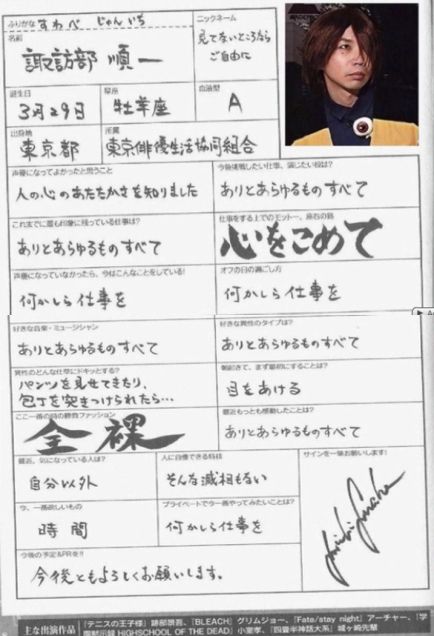 ふりがな すわべ じゅんいち
ニックネーム
名前
諏訪部 順一
見てないところなら
ご自由に
誕生日
3月29日
星座
牡羊座
血液型
A
出身地
東京都
所属
東京俳優生活協同組合
声優になってよかったと思うこと
人の心のあたたかさを知りました
今後挑戦したい仕事、演じたい役は?
ありとあらゆるものすべて
これまでに最も印象に残っている仕事は?
ありとあらゆるものすべて
仕事をする上でのモットー、座右の銘
心をこめて
声優になっていなかったら、今はこんなことをしている!
何かしら仕事を
オフの日の過ごし方
何かしら仕事を
好きな音楽・ミュージシャン
ありとあらゆるものすべて
好きな異性のタイプは?
ありとあらゆるものすべて
異性のどんな仕草にドキッとする?
パンツを見せてきたり、
包丁を突きつけられたら…
朝起きて、まず最初にすることは?
目をあける
ここ一番の時の勝負ファッション
全裸
最近もっとも感動したことは?
ありとあらゆるものすべて
最近、気になっている人は?
自分以外
人に自慢できる特技
そんな滅相もない
サインを一筆お願いします!
今、一番欲しいもの
時間
プライベートで今一番やってみたいことは?
何かしら仕事を
今後の予定&PRを!!
今後ともよろしくお願いします。
主な出演作品
『テニスの王子様』跡部景吾、『BLEACH』グリムジョー、『Fate/stay night』アーチャー、『学
園黙示録 HIGHSCHOOL OF THE DEAD』小室孝、『四畳半神話大系』城ヶ崎先輩